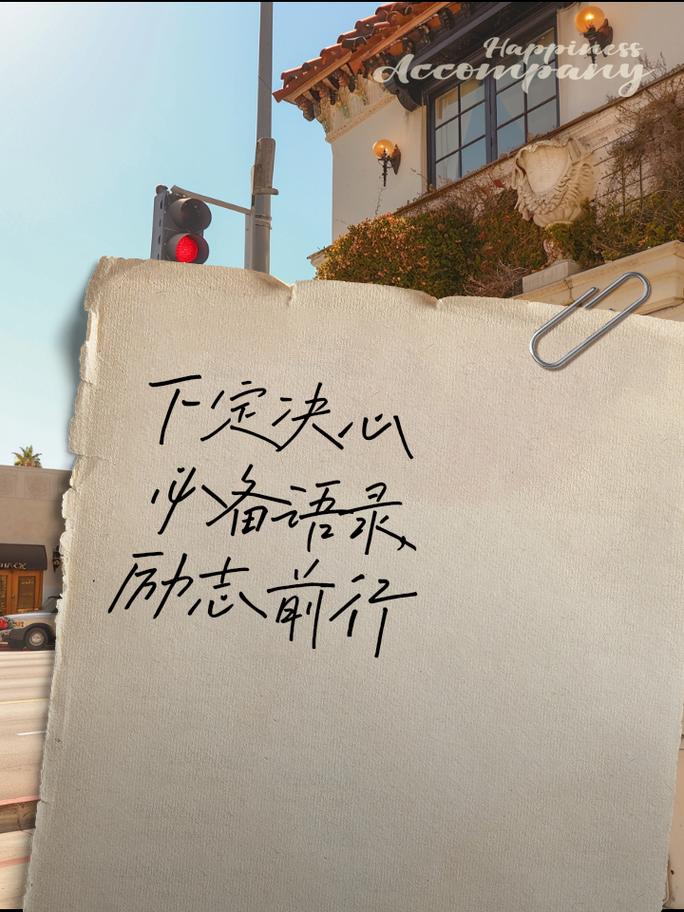 Happiness
Accompany
下定决心
必备语录
励志前行